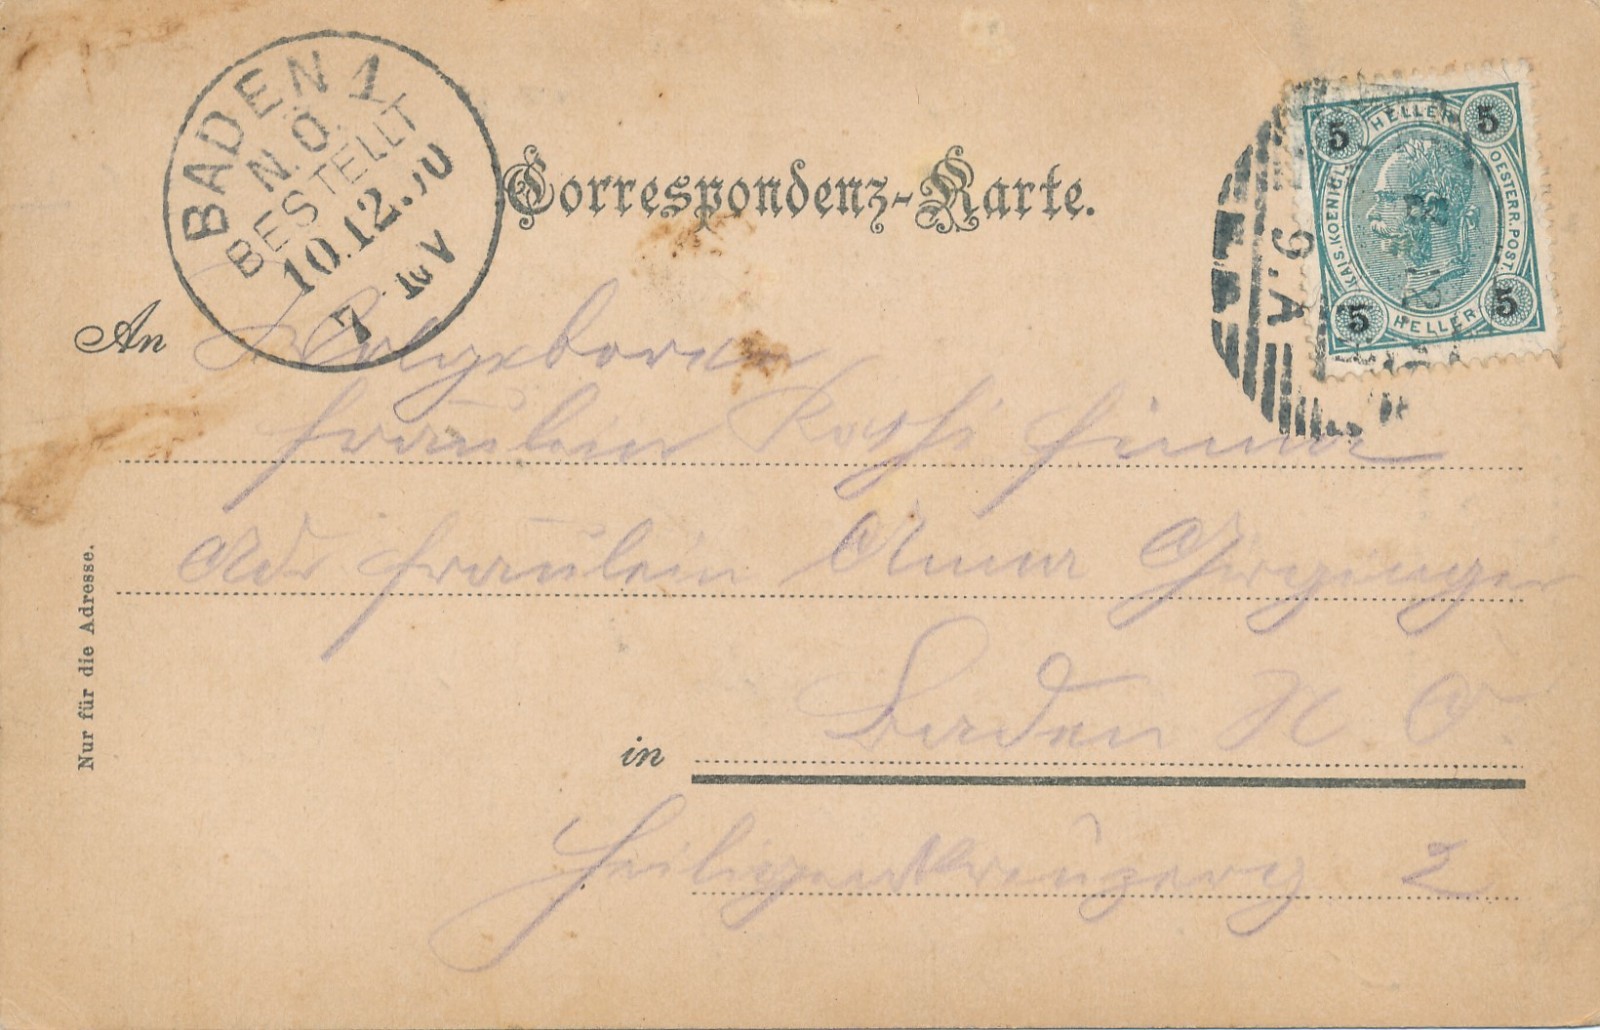 BADEN 1
N.Ö.
BESTELLT
10.12.00
7-10V
Correspondenz-Karte.
5 HELLER 5
KAIS. KOENIGL. OESTERR. POST.
5 HELLER 5
9.A
An Wolgeboren
Fräulein
Adr Fräulein Anna
in Baden N. Ö.
Heiligenkreuzerg 2
Nur für die Adresse.